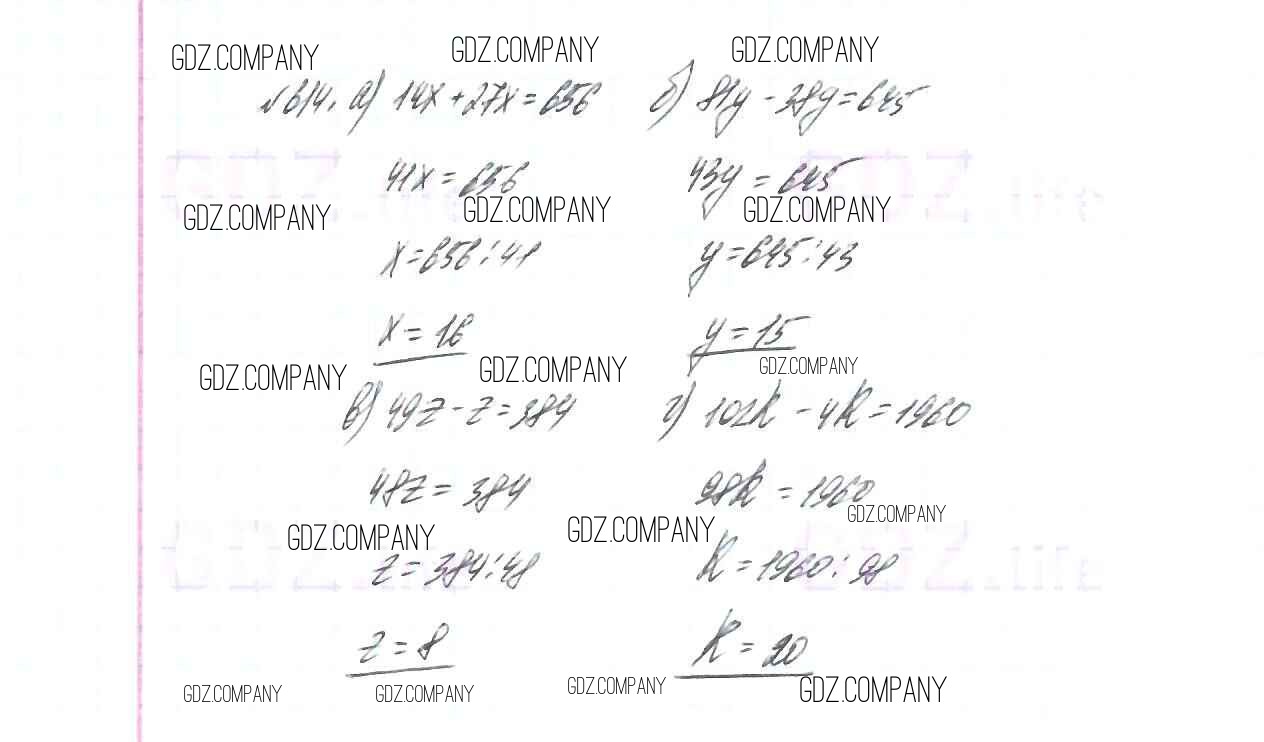 GDZ.COMPANY GDZ.COMPANY GDZ.COMPANY
№614. а) 14x + 27x = 656 б) 81y - 38y = 645
GDZ.life GDZ.life
41x = 656 43y = 645
GDZ.COMPANY GDZ.COMPANY GDZ.COMPANY
x = 656 : 41 y = 645 : 43
x = 16 y = 15
GDZ.COMPANY GDZ.COMPANY GDZ.COMPANY
в) 49z - z = 384 г) 102k - 4k = 1960
48z = 384 98k = 1960
GDZ.COMPANY GDZ.COMPANY GDZ.COMPANY
GDZ.life GDZ.life
z = 384 : 48 k = 1960 : 98
z = 8 k = 20
GDZ.COMPANY GDZ.COMPANY GDZ.COMPANY GDZ.COMPANY